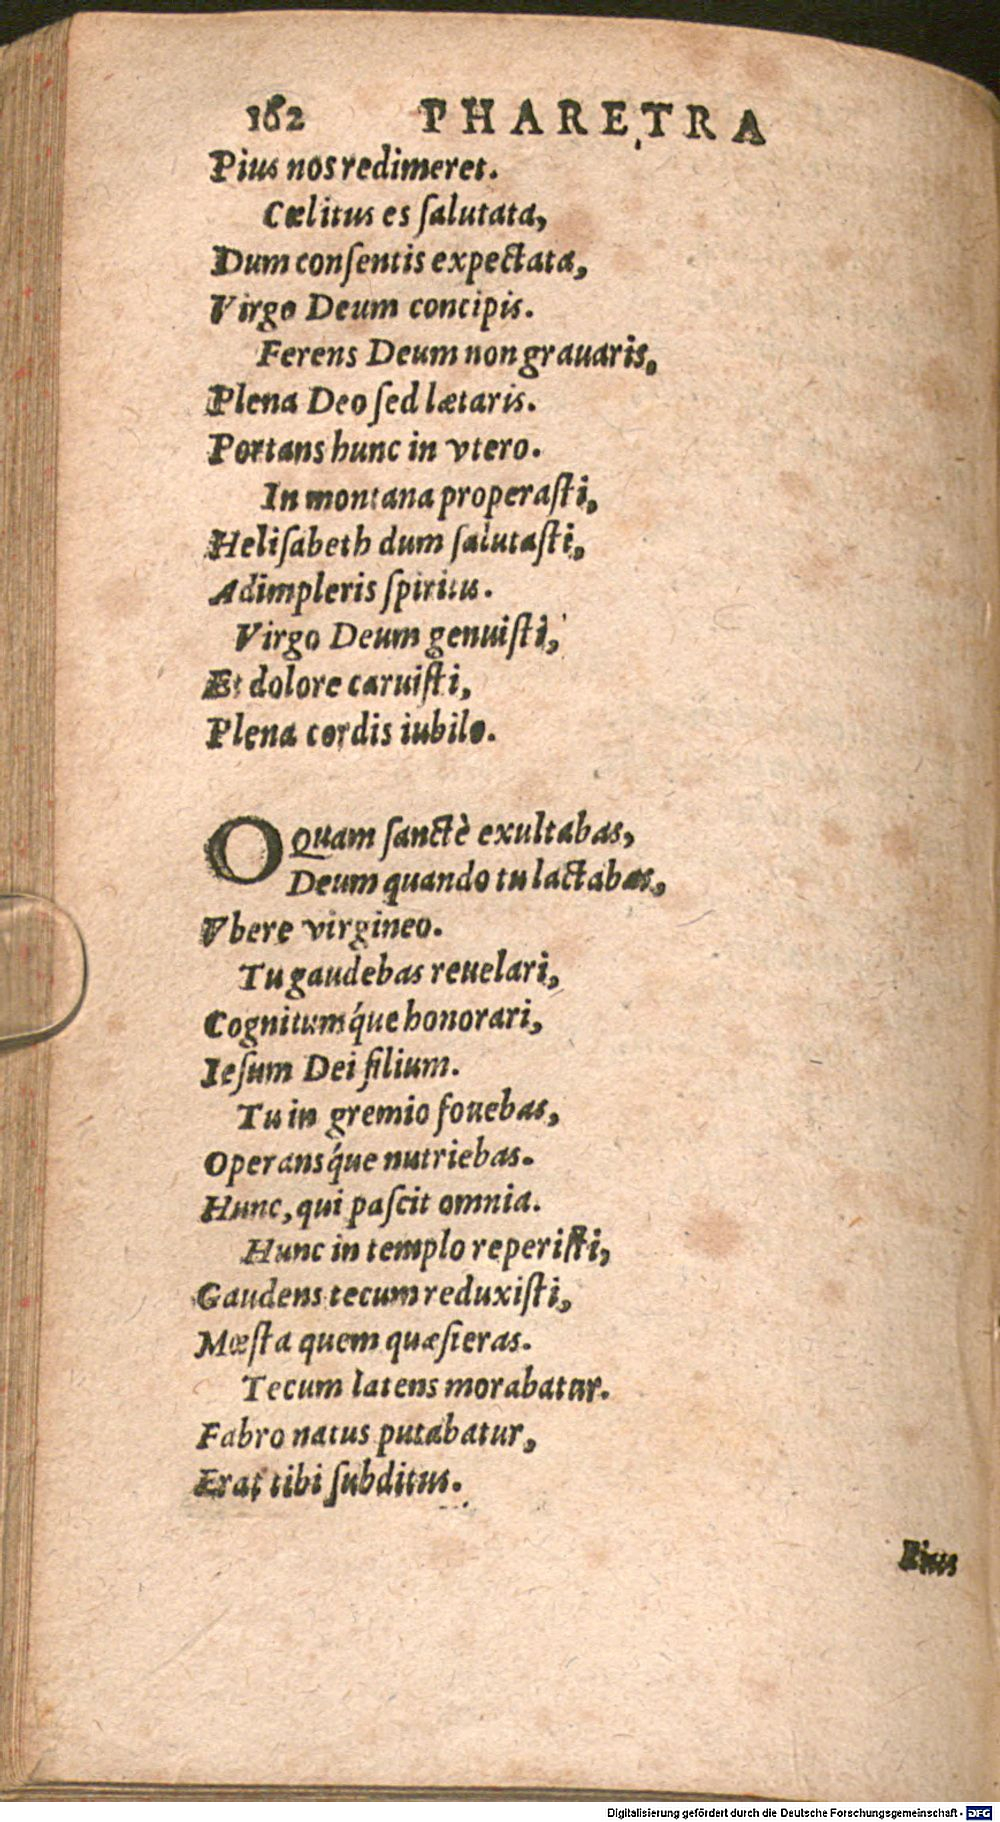 162 PHARETRA
Pius nos redimeret.
Cælitus es ſalutata,
Dum conſentis expectata,
Virgo Deum concipis.
Ferens Deum non grauaris,
Plena Deo ſed lætaris.
Portans hunc in vtero.
In montana properaſti,
Heliſabeth dum ſalutaſti,
Adimpleris ſpiritus.
Virgo Deum genuiſti,
Et dolore caruiſti,
Plena cordis iubilo.
O Quam ſanctè exultabas,
Deum quando tu lactabas,
Vbere virgineo.
Tu gaudebas reuelari,
Cognitumq́ue honorari,
Ieſum Dei filium.
Tu in gremio fouebas,
Operansq́ue nutriebas.
Hunc, qui paſcit omnia.
Hunc in templo reperiſti,
Gaudens tecum reduxiſti,
Mœſta quem quæſieras.
Tecum latens morabatur.
Fabro natus putabatur,
Erat tibi ſubditus.
Pius
Digitalisierung gefördert durch die Deutsche Forschungsgemeinschaft - DFG